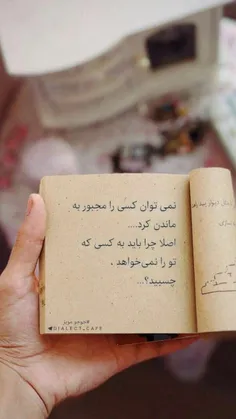 نمی توان کسی را مجبور به
ماندن کرد....
اصلا چرا باید به کسی که
تو را نمی‌خواهد ،
چسبید؟...
DIALECT_CAFE